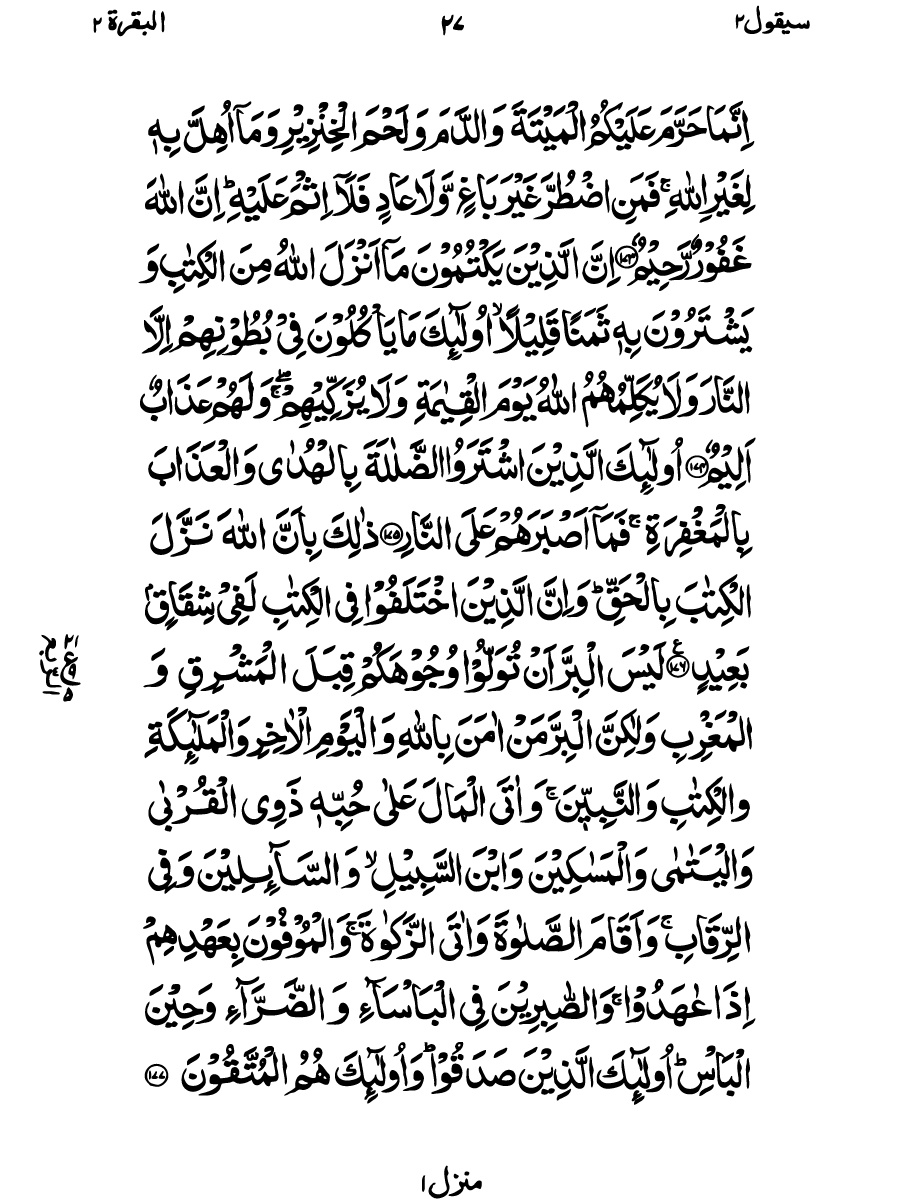 سيقول٢ ٢٧ البقرة ٢
اِنَّمَا حَرَّمَ عَلَيْكُمُ الْمَيْتَةَ وَالدَّمَ وَلَحْمَ الْخِنْزِيْرِ وَمَآ اُهِلَّ بِهٖ
لِغَيْرِ اللّٰهِ ۚ فَمَنِ اضْطُرَّ غَيْرَ بَاغٍ وَّلَا عَادٍ فَلَآ اِثْمَ عَلَيْهِ ؕ اِنَّ اللّٰهَ
غَفُوْرٌ رَّحِيْمٌ ﴿١٧٣﴾ اِنَّ الَّذِيْنَ يَكْتُمُوْنَ مَآ اَنْزَلَ اللّٰهُ مِنَ الْكِتٰبِ وَ
يَشْتَرُوْنَ بِهٖ ثَمَنًا قَلِيْلًا ۙ اُولٰٓئِكَ مَا يَاْكُلُوْنَ فِيْ بُطُوْنِهِمْ اِلَّا
النَّارَ وَلَا يُكَلِّمُهُمُ اللّٰهُ يَوْمَ الْقِيٰمَةِ وَلَا يُزَكِّيْهِمْ ۖۚ وَلَهُمْ عَذَابٌ
اَلِيْمٌ ﴿١٧٤﴾ اُولٰٓئِكَ الَّذِيْنَ اشْتَرَوُا الضَّلٰلَةَ بِالْهُدٰى وَالْعَذَابَ
بِالْمَغْفِرَةِ ۚ فَمَآ اَصْبَرَهُمْ عَلَى النَّارِ ﴿١٧٥﴾ ذٰلِكَ بِاَنَّ اللّٰهَ نَزَّلَ
الْكِتٰبَ بِالْحَقِّ ؕ وَاِنَّ الَّذِيْنَ اخْتَلَفُوْا فِى الْكِتٰبِ لَفِيْ شِقَاقٍۭ
بَعِيْدٍ ﴿١٧٦﴾ لَيْسَ الْبِرَّ اَنْ تُوَلُّوْا وُجُوْهَكُمْ قِبَلَ الْمَشْرِقِ وَ
الْمَغْرِبِ وَلٰكِنَّ الْبِرَّ مَنْ اٰمَنَ بِاللّٰهِ وَالْيَوْمِ الْاٰخِرِ وَالْمَلٰٓئِكَةِ
وَالْكِتٰبِ وَالنَّبِيّٖنَ ۚ وَاٰتَى الْمَالَ عَلٰى حُبِّهٖ ذَوِى الْقُرْبٰى
وَالْيَتٰمٰى وَالْمَسٰكِيْنَ وَابْنَ السَّبِيْلِ ۙ وَالسَّآئِلِيْنَ وَفِى
الرِّقَابِ ۚ وَاَقَامَ الصَّلٰوةَ وَاٰتَى الزَّكٰوةَ ۚ وَالْمُوْفُوْنَ بِعَهْدِهِمْ
اِذَا عٰهَدُوْا ۚ وَالصّٰبِرِيْنَ فِى الْبَاْسَآءِ وَالضَّرَّآءِ وَحِيْنَ
الْبَاْسِ ؕ اُولٰٓئِكَ الَّذِيْنَ صَدَقُوْا ؕ وَاُولٰٓئِكَ هُمُ الْمُتَّقُوْنَ ﴿١٧٧﴾
منزل ١